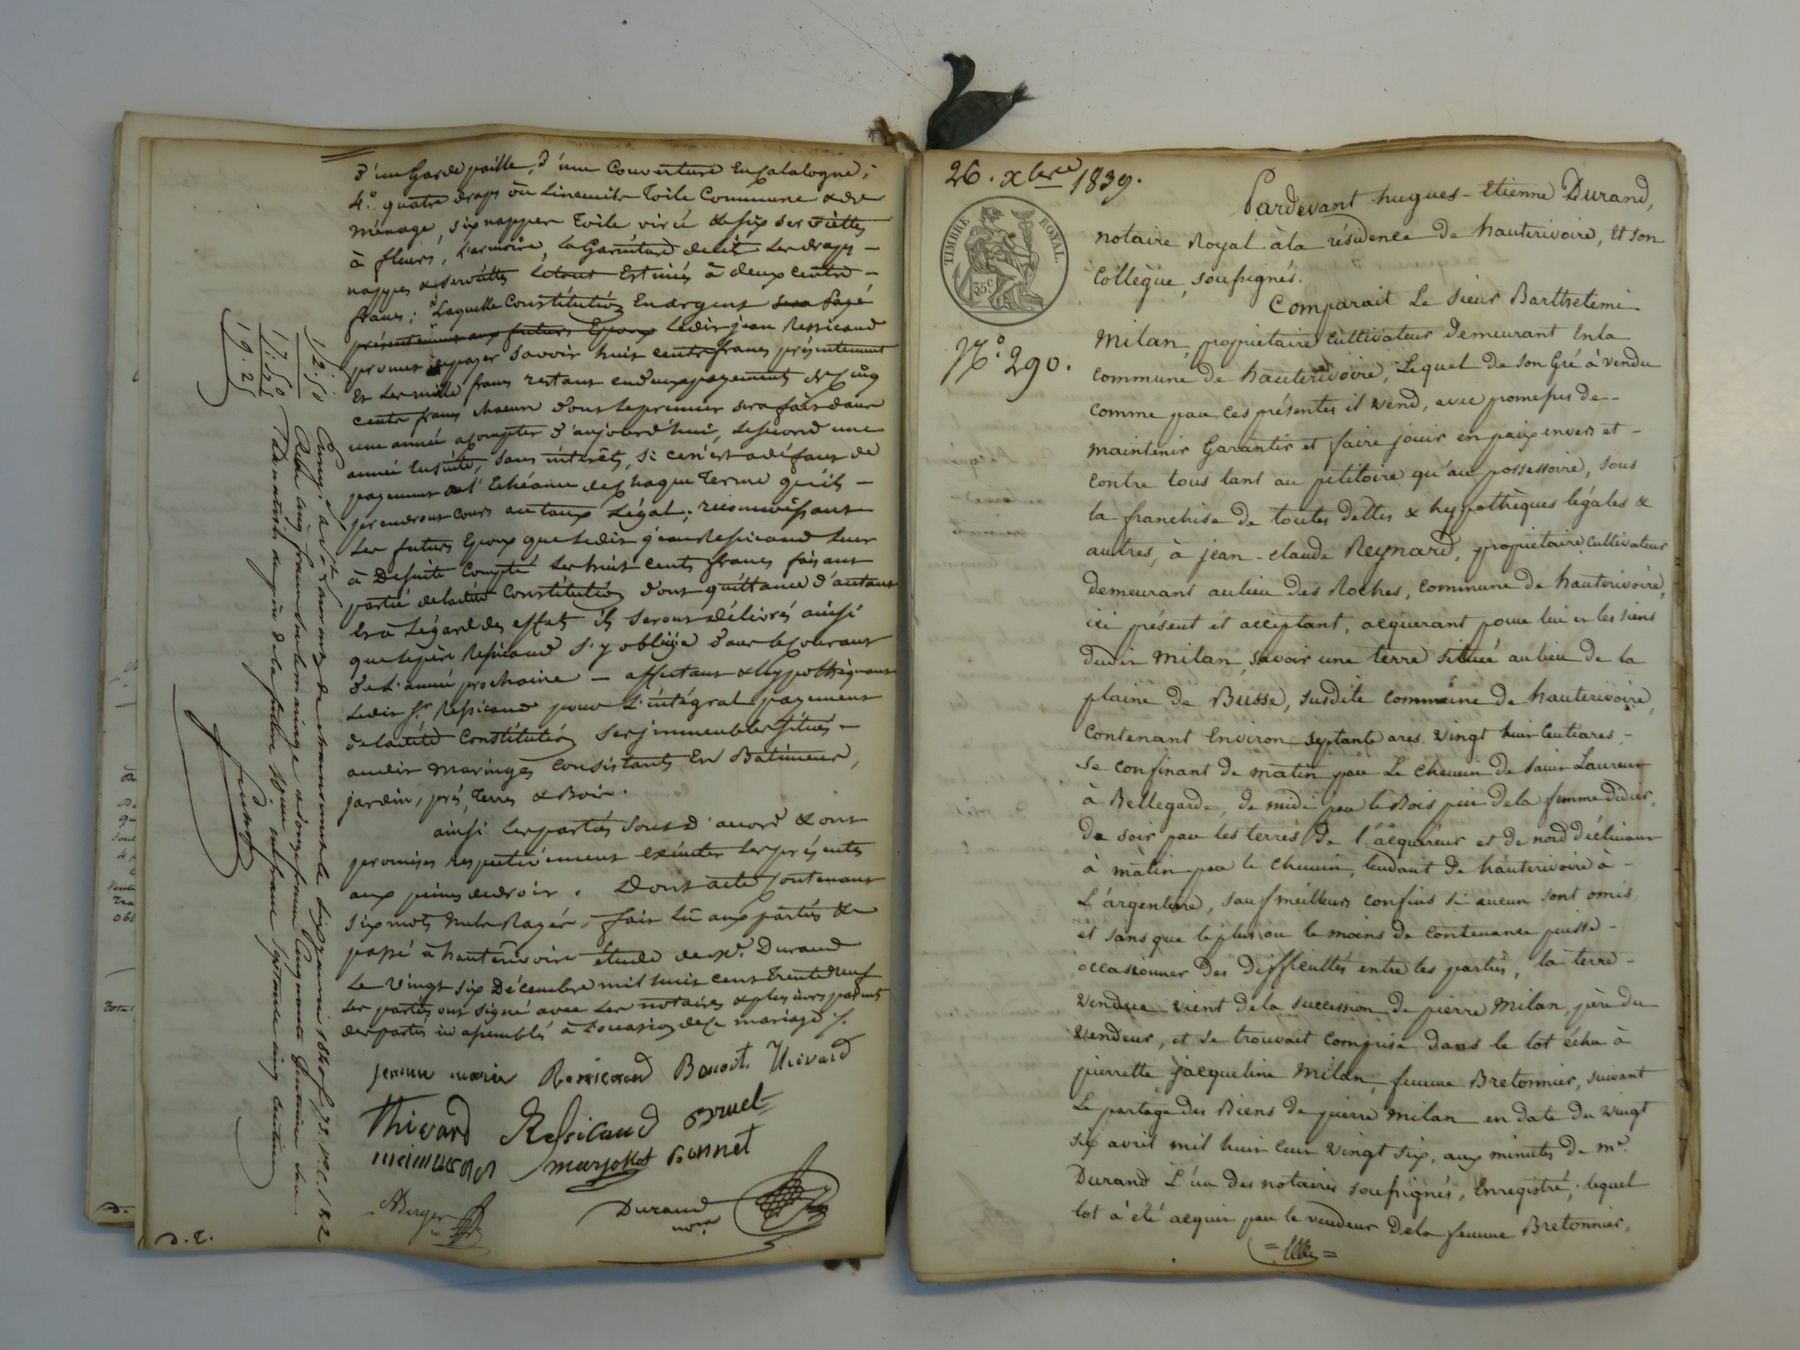 d'un Garde paille, d'une Couverture En Catalogne;
4.° quatre draps ou Linceuils toile Commune & de
ménage, six nappes toile virié & six serviettes
à fleurs, L'armoire, la Garniture de lit les draps
nappes & serviettes Le tout Estimés à deux cents
francs; Laquelle Constitution En argent sera payé
présentement aux futurs Epoux Ledit jean Ressicaud
promet payer savoir huit cents francs présentement
Et les mille francs restant en deux payements de Cinq
cents francs chacun dont le premier sera fait dans
une année a compter d'aujourd'hui, le second une
année Ensuite, sans intérêts, si ce n'est a défaut de
payement à l'Echéance de chaque terme qu'ils
prendront cours au taux Légal; reconnoissant
Les futurs Epoux que Ledit jean Ressicaud Leur
à De suite Compté Les huit cents francs faisant
partie de ladite Constitution dont quittance d'autant
Et à L'égard des effets ils seront délivrés ainsi
que le père Ressicaud s'y oblige dans le Courant
de L'année prochaine — affectant & hypothéquant
Ledit S.r Ressicaud pour L'intégral payement
de ladite Constitution ses immeubles situés
audit Maringes Consistants En Batiments,
jardin, prés, terres & Bois.
ainsi Les parties sont d'accord & ont
promises respectivement exécuter Les présentes
aux peines de droit. Dont acte contenant
six mots nuls Rayés, fait lu aux parties &
passé à hauterivoire étude de M.e Durand
Le vingt six Décembre mil huit cent trente neuf
Les parties ont signé avec Les notaires & plusieurs parents
des parties ici assemblés à L'occasion de ce mariage ./.
jeanne marie Ressicaud Benoit Thivard
Thivard Ressicaud Bruel
marjollet Bonnet
Durand
no.re
D. E.
12:50
17:50
19:25
26. Xbre 1839.
TIMBRE ROYAL.
35c
N.° 290.
Pardevant hugues-Etienne Durand,
notaire Royal à la résidence de hauterivoire, Et son
Collègue, soussignés.
Comparait Le sieur Barthelemi
Milan, propriétaire Cultivateur Demeurant En la
commune de hauterivoire, Lequel de son Gré à vendu
comme par ces présentes il vend, avec promesses de
maintenir Garantir et faire jouir en paix envers et
contre tous tant au pétitoire qu'au possessoire, sous
la franchise de toutes dettes & hypothèques légales &
autres, à jean-claude Reynard, propriétaire Cultivateur
demeurant au lieu des Roches, commune de hauterivoire,
ici présent et acceptant, acquerant pour lui et les siens
dudit Milan, savoir une terre située au lieu de la
plaine de Busse, susdite commune de hauterivoire,
Contenant Environ septante ares vingt huit Centiares
se confinant de matin par Le chemin de Saint Laurent
à Bellegarde, de midi par le Bois pin de la femme didier,
de soir par les terres de l'acquéreur et de nord déclinant
à matin par le chemin, tendant de hauterivoire à
L'argentiere, sauf meilleurs confins si aucun sont omis
et sans que le plus ou le moins de Contenance puisse
occasionner des difficultés entre les parties, la terre
vendue vient de la succession de pierre Milan, père du
vendeur, et se trouvait comprise dans le lot échu à
pierrette jacqueline Milan, femme Bretonnier, suivant
Le partage des Biens de pierre Milan en date du vingt
six avril mil huit cent vingt six, aux minutes de M.e
Durand L'un des notaires soussignés, Enregistré, lequel
lot à été acquis par le vendeur De la femme Bretonnier,